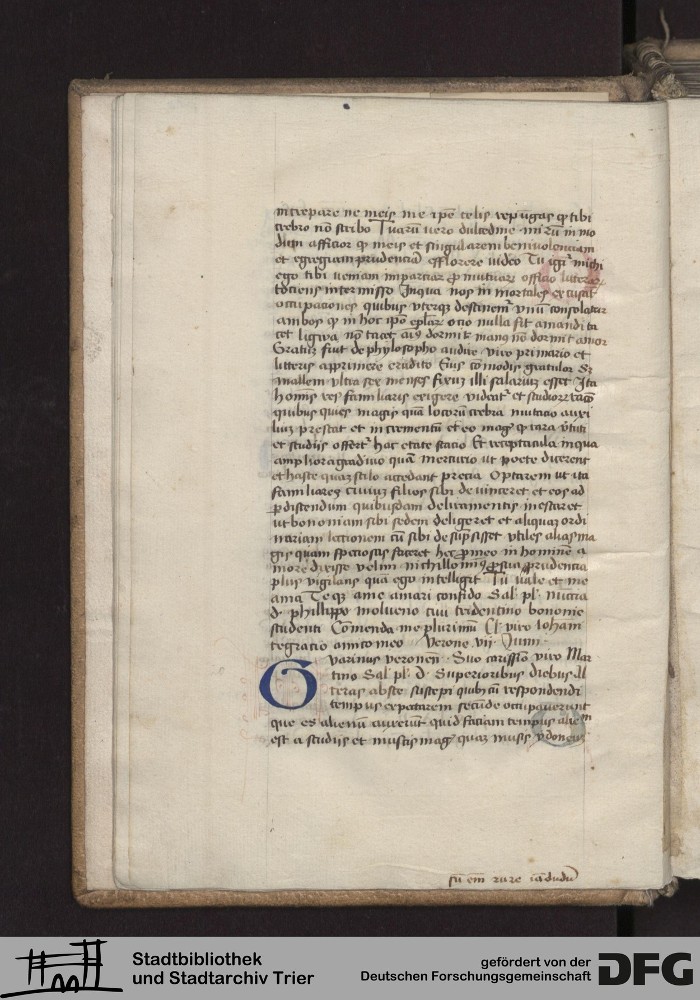 increpare ne meis me ipē telis repugas ꝙ tibi
crebro nō scribo Tuarū uero dulcedine mirū in mo
dum afficior ꝙ meis et singularem beniuolenciam
et egregiam prudenciā efflorere uideo Tu igr̄ michi
ego tibi ueniam imparciar ꝓ mutuar officio litterar
tociens intermisso Inqua nos in mortales excusāt
occupaciones quibus uterqꝫ destinemr̄ vnū consolatur
ambos ꝙ in hoc ip̄o eplār ocio nulla fit amandi ta
cet ligwa nō tacet aīꝫ dormit manꝫ nō dormit amor
Gratū fuit de phylosopho audire viro primario et
litteris apprimere erudito Eius cōmodis gratulor Sꝫ
mallem vltra sex menses fixuꝫ illi salarium esset Ita
hominis res familiaris exigere videatr̄ et studioꝝ racō
quibus quies magis quā locorū crebra mutacio auxi
liuꝫ prestat et incrementū et eo magꝫ ꝙ rara v̄tuti
et studiis offertr̄ hac etate stacio Et receptacula inqua
ampliora gradiuo quā mercurio ut poete dicerent
et haste quaꝫ stilo accedant precia Optarem ut ita
familiares ciuiuꝫ filios sibi deuinceret et eos ad
ꝑdistendum quibusdam deliramentis inescaret
ut bononiam sibi sedem deligeret et aliquaꝫ ordi
nariam lectionem cū sibi desūpsisset vtiles alias ma
gis quam speciosas faceret hec ꝓ meo in hominē a
more dixisse velim nichillominꝰ ꝓ sua prudencia
plus vigilans quā ego intelligit Tu uale et me
ama Teqꝫ a me amari confido Sal' pl' nuncia
d. phillippo molueno ciui tridentino bononie
studenti Comenda me plurimū Cl' viro Iohani
tegracio amico meo Verone vii Iunii
Guarinus veronen̄ Suo carissīo viro Mar
tino Sal' pl' d. Superioribus diebus lit
teras abs te suscepi quibꝫ cū respondendi
tempus expectarem secūde occupauerunt
que es alienū auxerunt quid faciam tempus alienū
est a studiis et mustis magꝫ quaꝫ musis ydoneuꝫ
sū em̄ rure iādudū
Stadtbibliothek
und Stadtarchiv Trier
gefördert von der
Deutschen Forschungsgemeinschaft
DFG